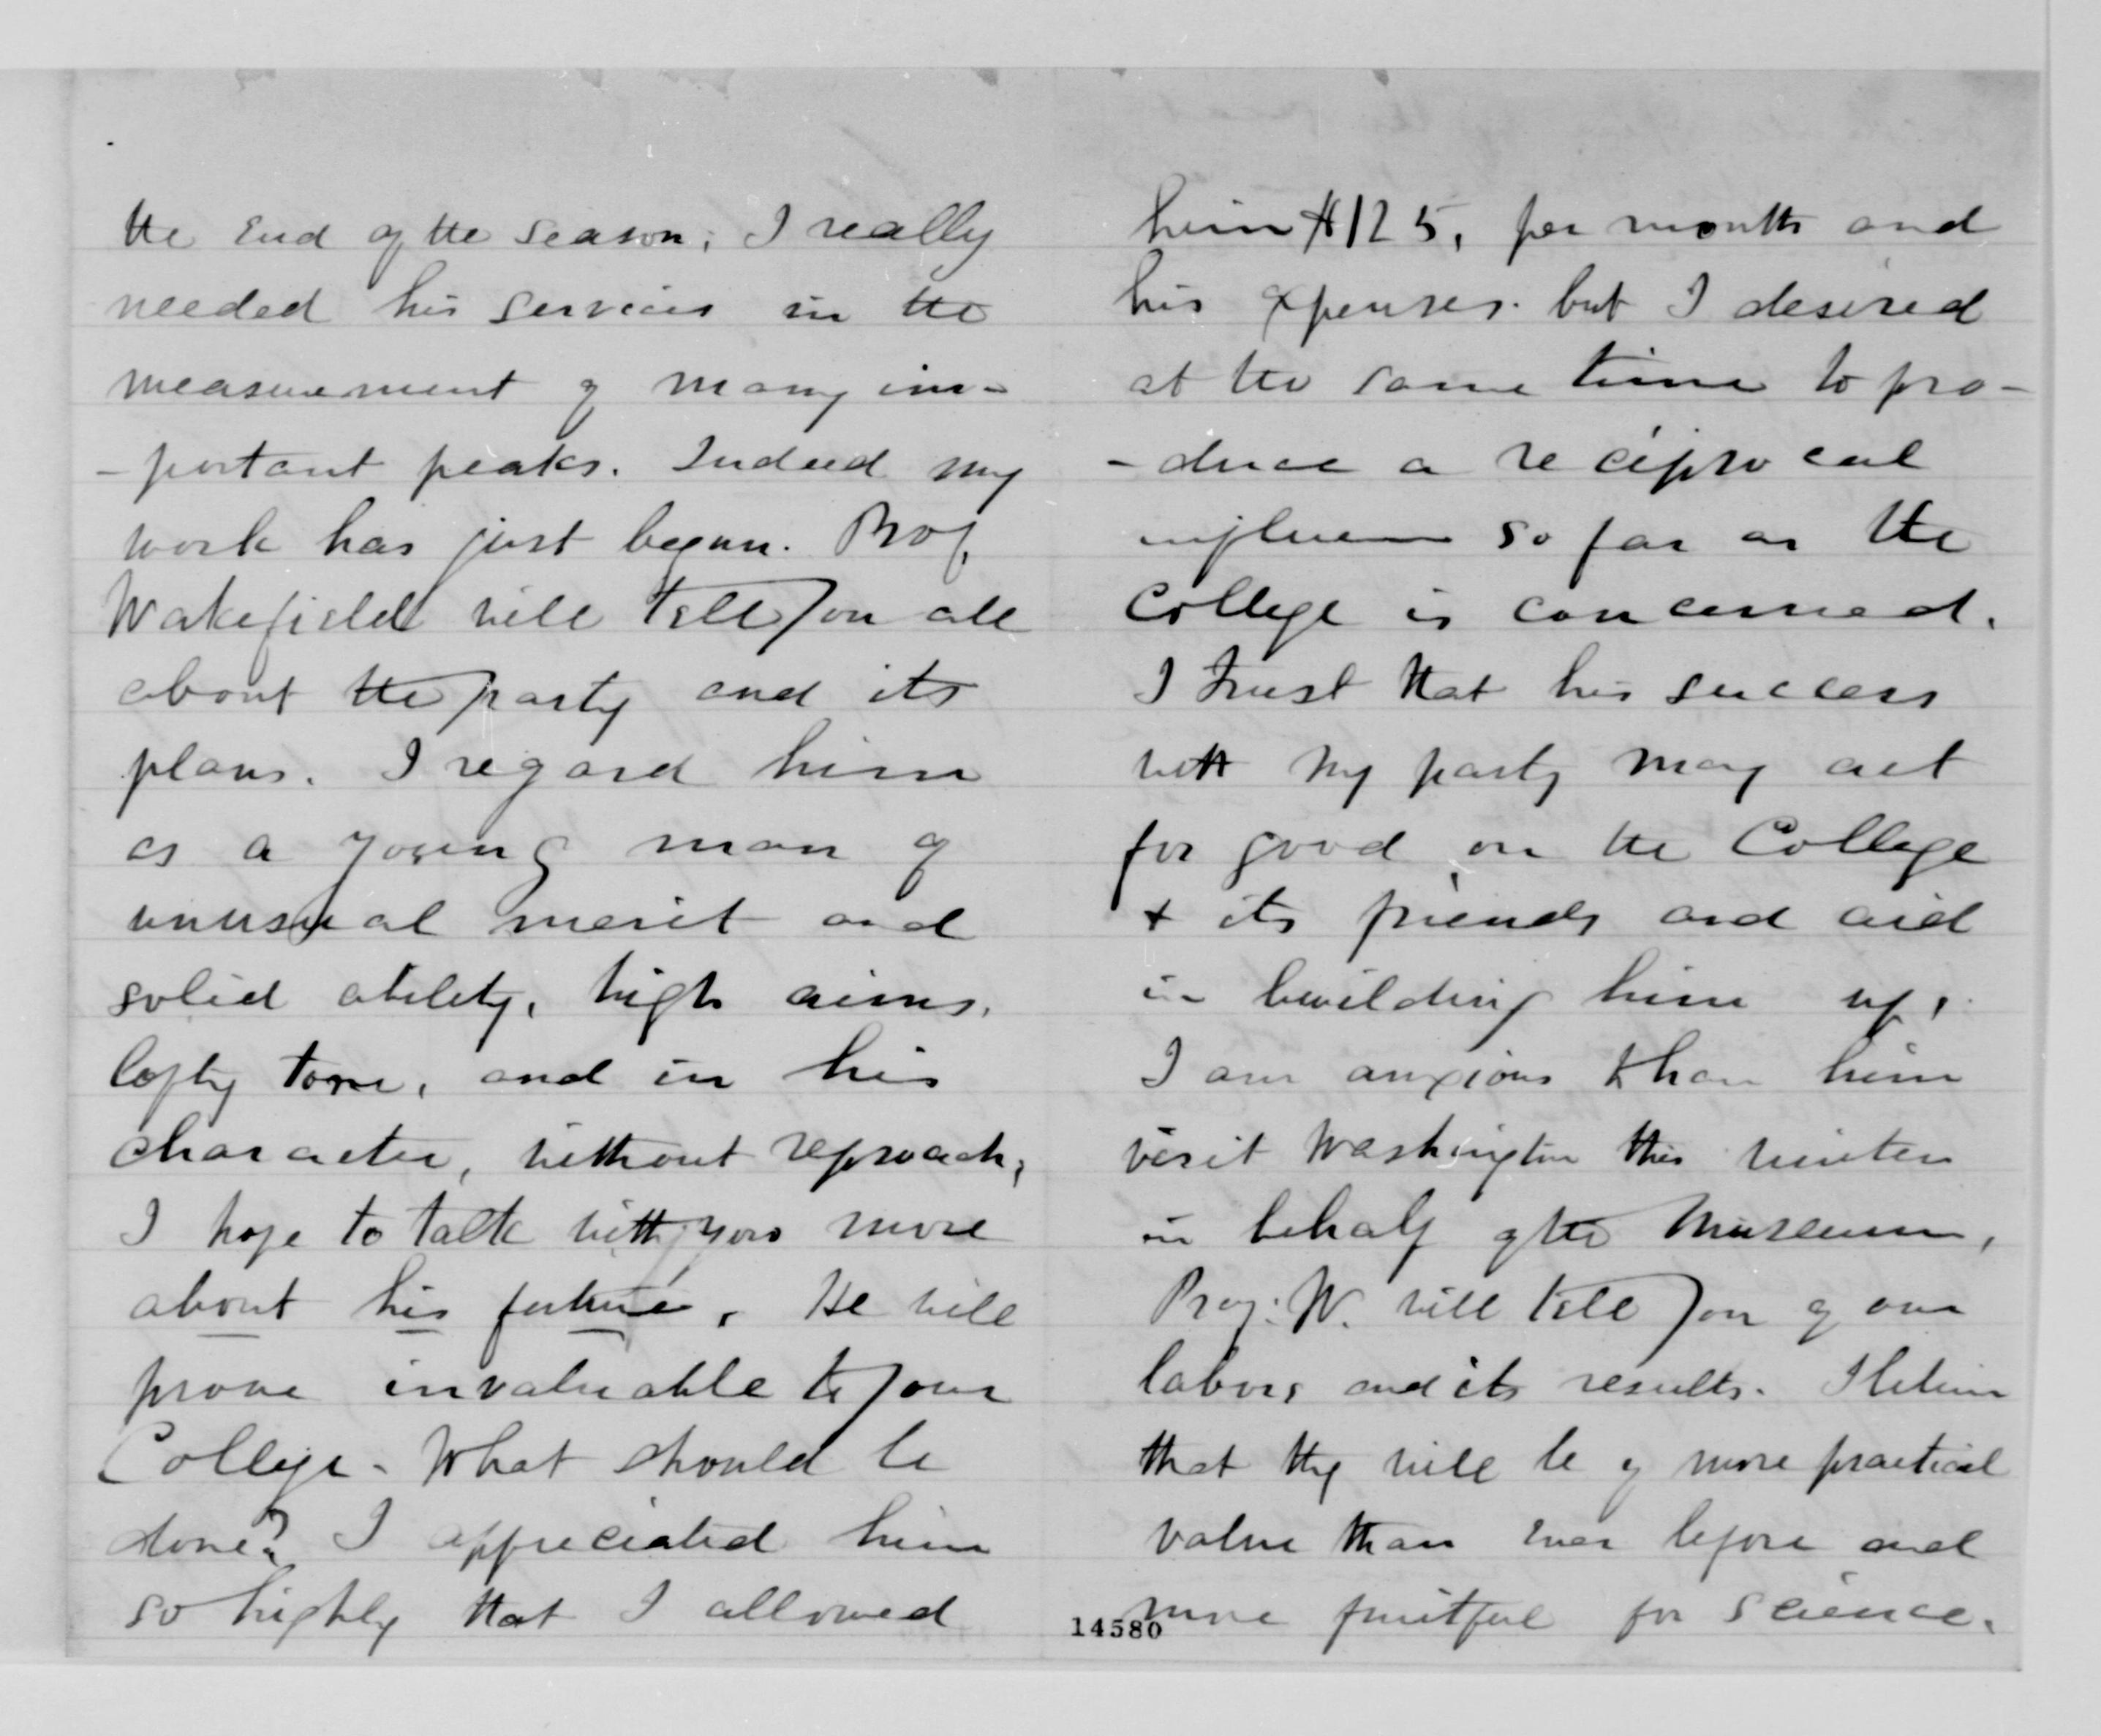 the End of the season, I really
needed his services in the
measurement of many im-
-portant peaks. Indeed my
work has just begun. Prof.
Wakefield will tell you all
about the party and its
plans. I regard him
as a young man of
unusual merit and
solid ability, high aims,
lofty tone, and in his
character, without reproach,
I hope to talk with you more
about his future. He will
prove invaluable to your
College. What should be
done? I appreciated him
so highly that I allowed
him $125. per month and
his expenses. but I desired
at the same time to pro-
-duce a reciprocal
influence so far as the
College is concerned.
I trust that his success
with my party may act
for good on the College
+ its friends and aid
in building him up.
I am anxious to have him
visit Washington this winter
in behalf of the Museum,
Prof. W. will tell you of our
labors and its results. I believe
that they will be of more practical
value than ever before and
more fruitful for science.
14580